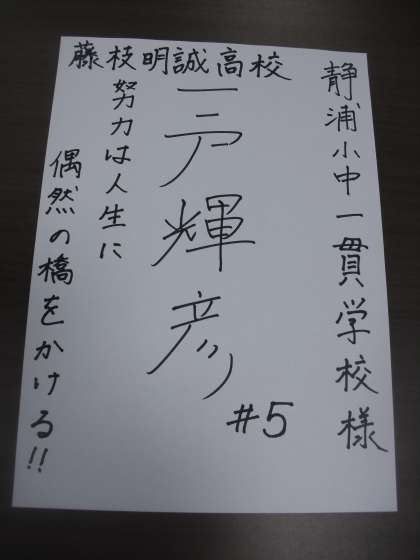 静浦小中一貫学校様
藤枝明誠高校
一戸輝彦
#5
努力は人生に
偶然の橋をかける!!